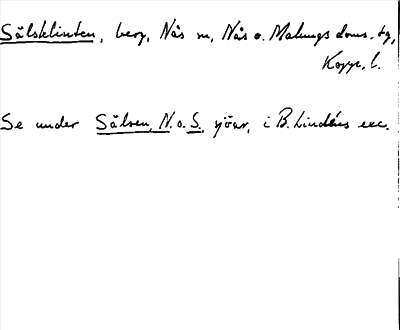 Sälsklinten, berg, Nås sn, Nås o. Malungs doms. tg,
Kopp. l.
Se under Sälsen, N. o. S. sjöar, i B. Lindéns exc.